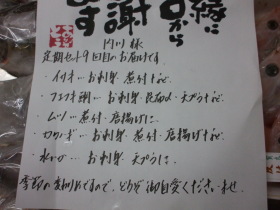 縁に
心から
感謝
です
門川 様
定期セット9回目のお届けです。
・イサキ… お刺身 煮付けなど
・フエフキ鯛… お刺身・昆布〆・天ぷらなど
・ムツ… 煮付・唐揚げに
・カワハギ… お刺身・煮付・唐揚げなど
・水いか… お刺身、天ぷらに
季節の変わり目ですので、どうぞ御自愛くださいませ